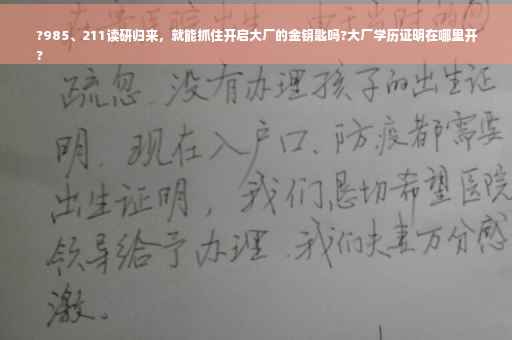 ?985、211读研归来，就能抓住开启大厂的金钥匙吗?大厂学历证明在哪里开
?
疏忽.没有办理孩子的出生证
明.现在入户口、防疫都需要
出生证明，我们恳切希望医院
领导给予办理.我们夫妻万分感
激。